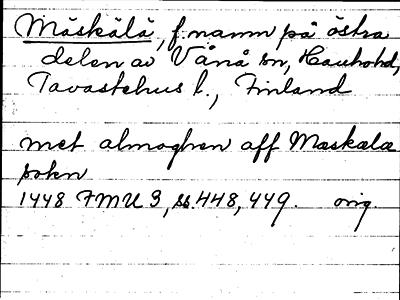 Mäskälä, f. namn på östra
delen av Vånå sn, Hauhohd,
Tavastehus l., Finland
met almoghen aff Maskalæ
sokn
1448 FMU 3, ss. 448, 449. orig.